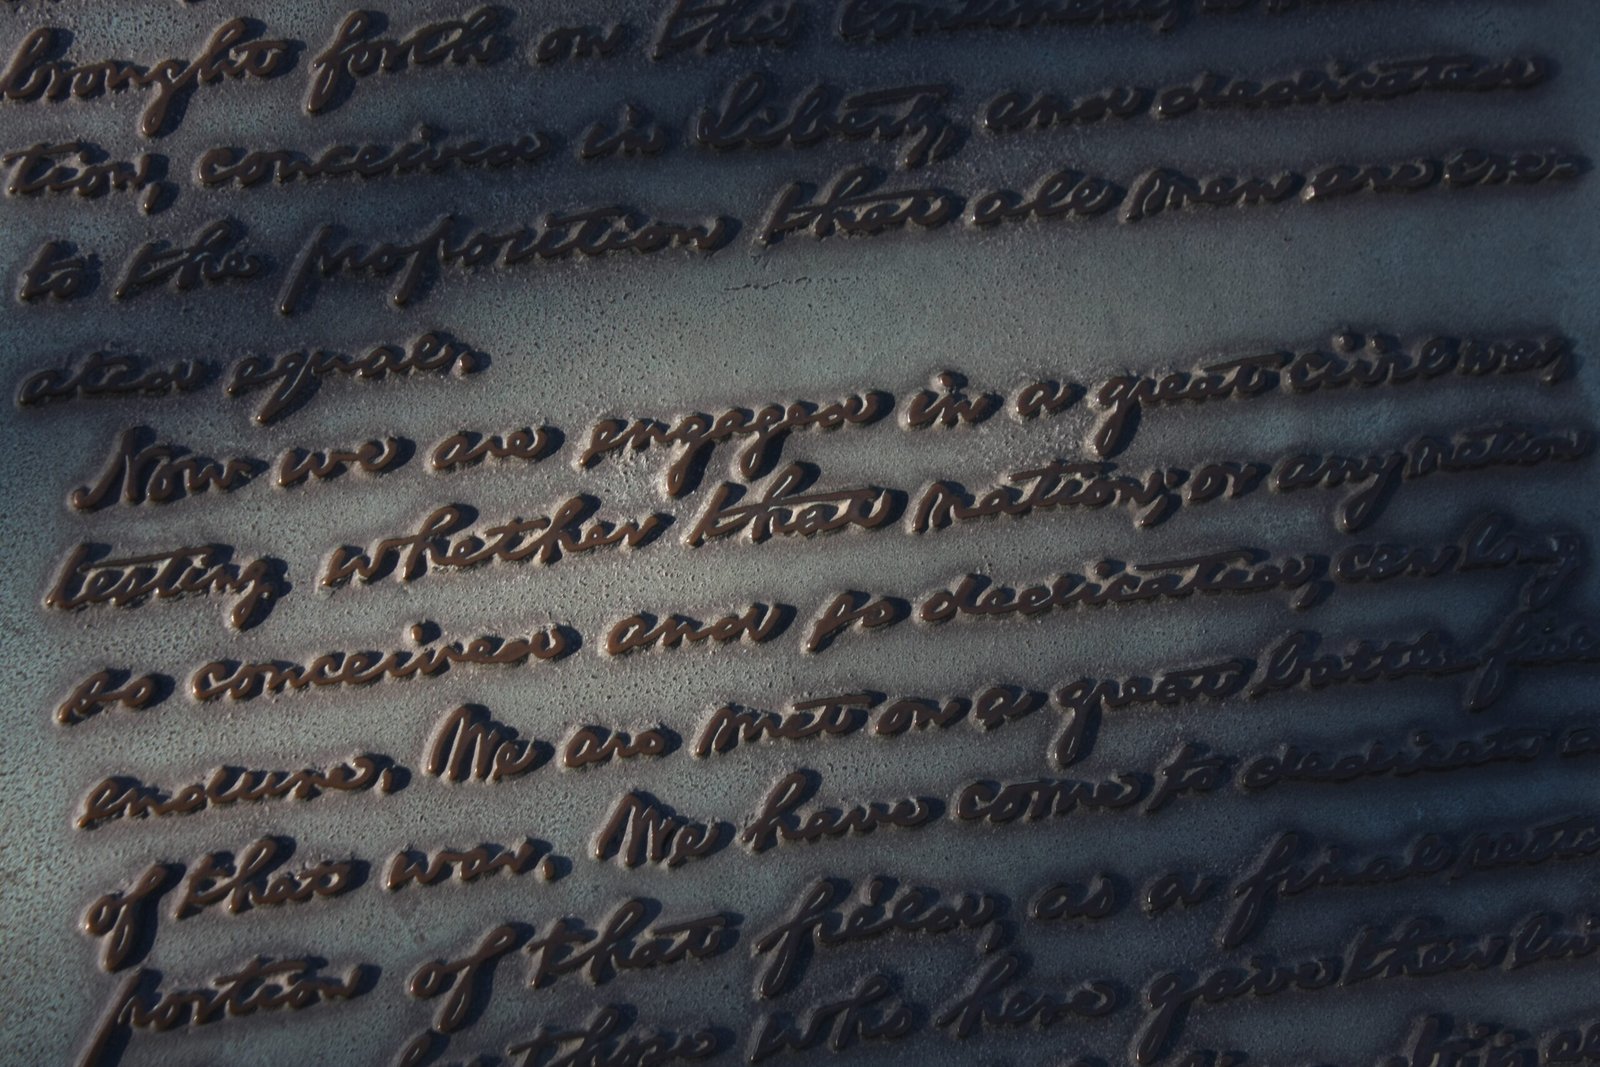 brought forth on this continent,
tion, conceived in Liberty, and dedicated
to the proposition that all men are cre-
ated equal.
Now we are engaged in a great civil war,
testing whether that nation, or any nation
so conceived and so dedicated, can long
endure. We are met on a great battle fiel
of that war. We have come to dedicate a
portion of that field, as a final resti
those who here gave their liv